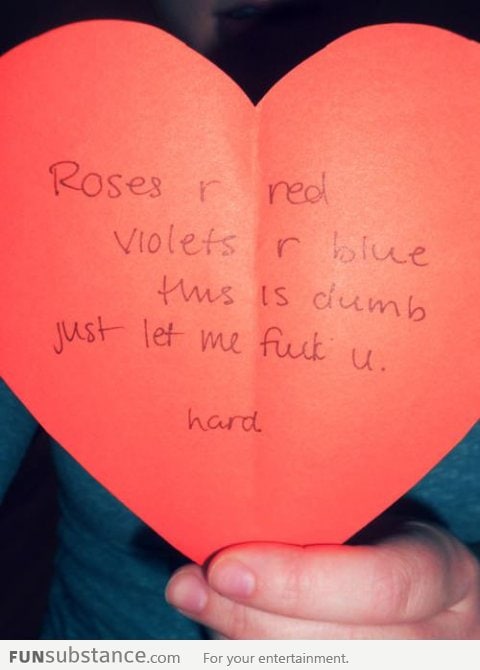 Roses r red
violets r blue
this is dumb
just let me fuck u.
hard
FUNsubstance.com For your entertainment.